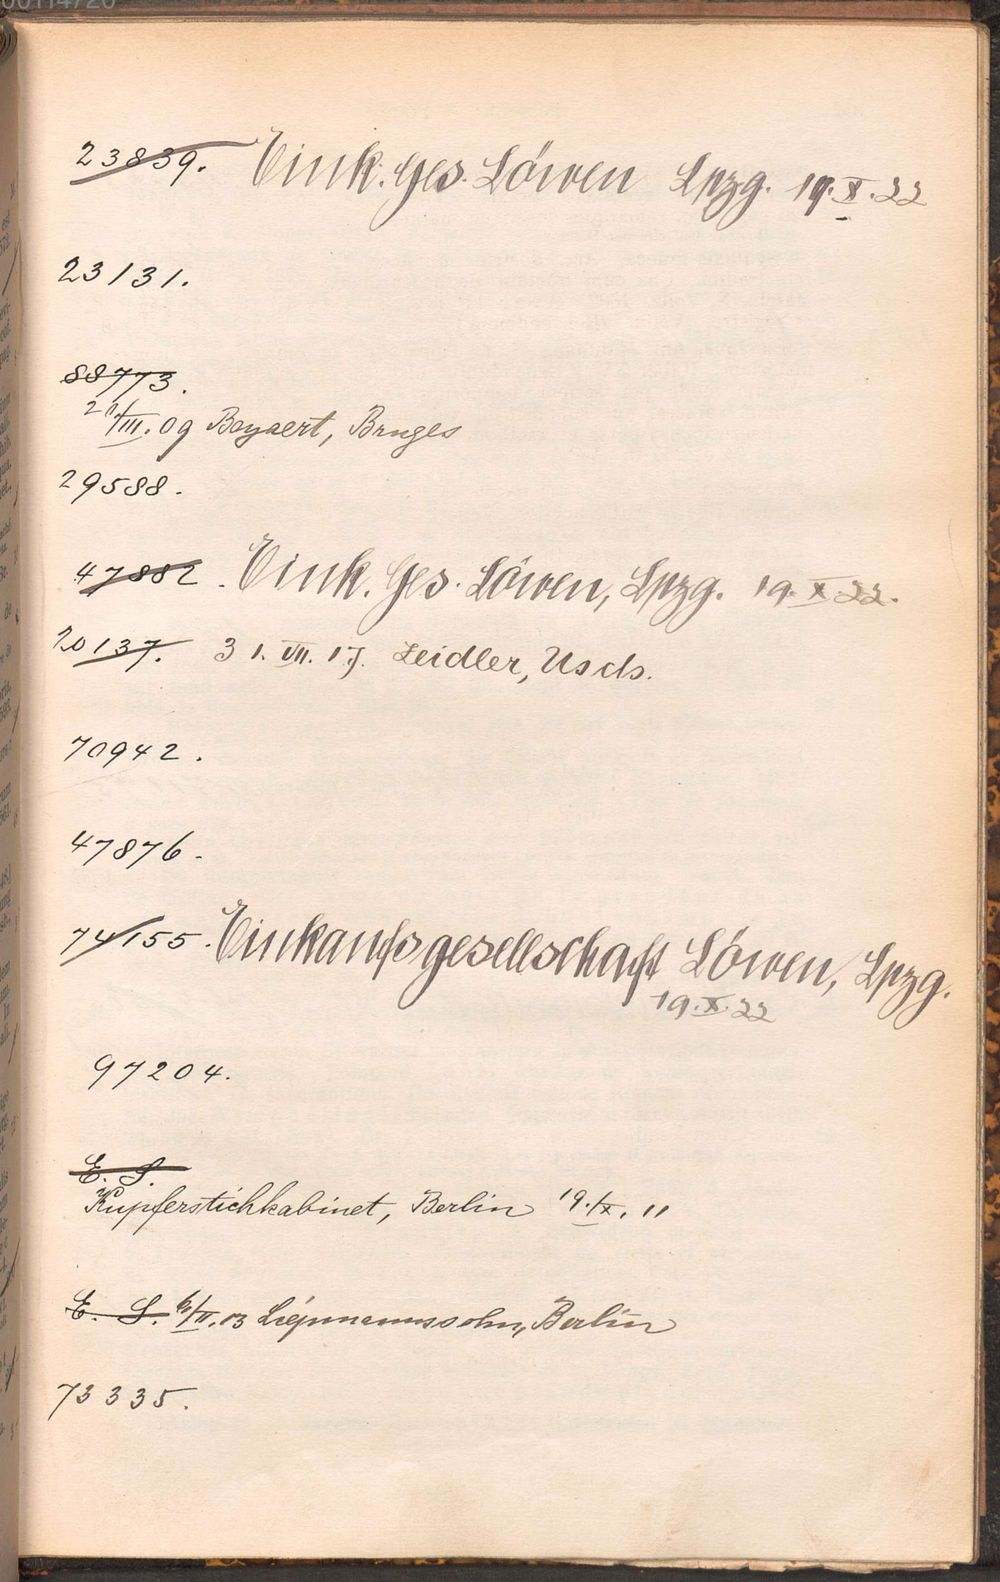 23839. Eink. Ges. Löwen Lpzg. 19.X.22
23131.
88773.
/III. 09 Beyaert, Bruges
29588.
47882. Eink. Ges. Löwen, Lpzg. 19.X.22.
20137. 31. VII. 17. Zeidler,
70942.
47876.
74155. Einkaufsgesellschaft Löwen, Lpzg.
19.X.22
97204.
E. S.
Kupferstichkabinet, Berlin 19./IX. 11
E. S. 6/II. 13 Liepmannssohn, Berlin
73335.